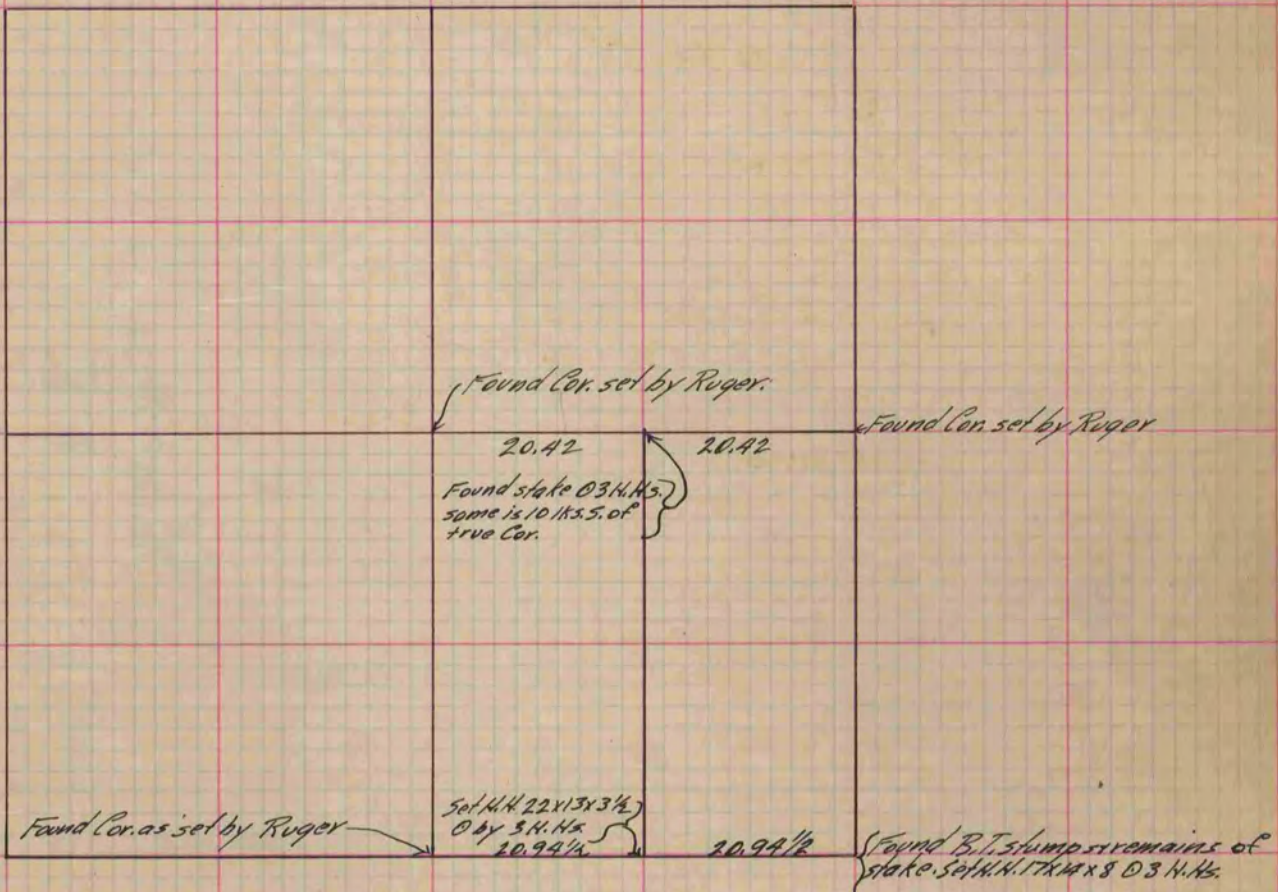 Found Cor. set by Ruger.
Found Cor. set by Ruger
20.42
20.42
Found stake ⊙ 3 H.Hs.
same is 10 lks. S. of
true Cor.
Set H.H. 22x13x3½
⊙ by 3 H.Hs.
Found Cor. as set by Ruger
20.94½
20.94½
Found B.T. stump & remains of
stake. Set H.H. 17x14x8 ⊙ 3 H.Hs.